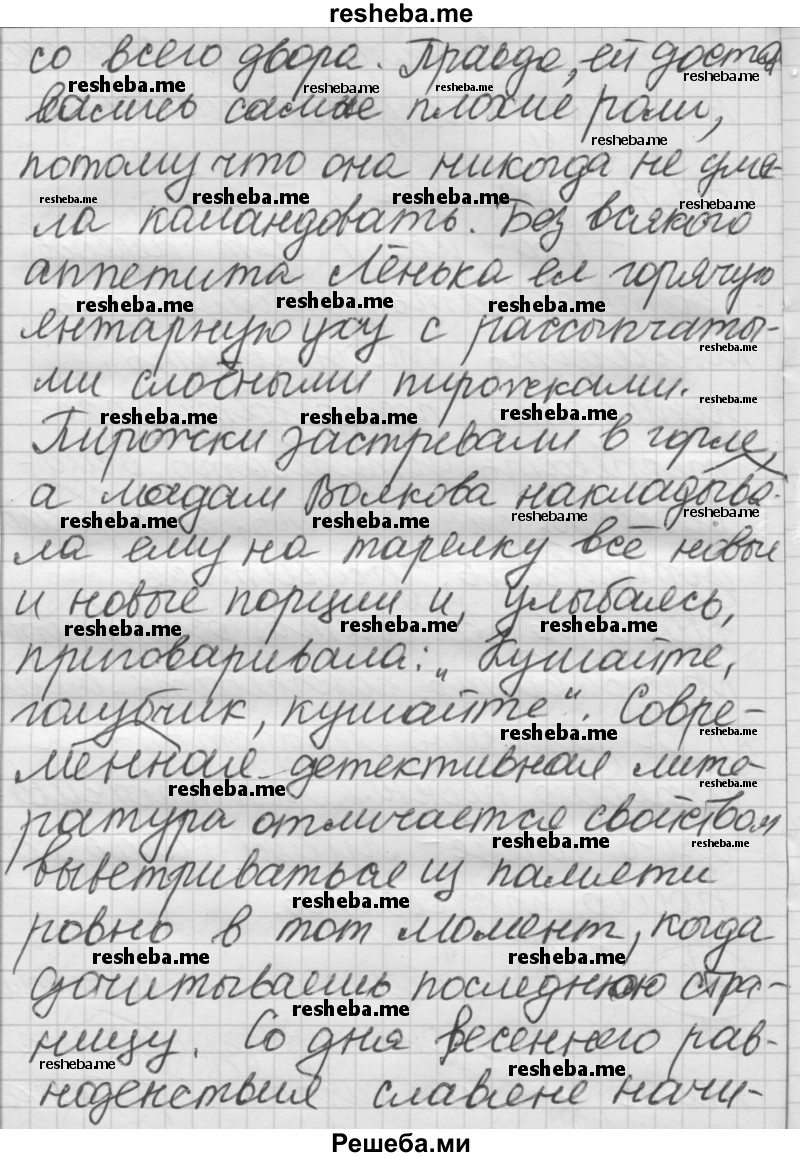 resheba.me
со всего двора. Правда, ей доста
вались самые плохие роли,
потому что она никогда не уме-
ла командовать. Без всякого
аппетита Лёнька ел горячую
янтарную уху с рассыпчаты-
ми слоёными пирожками.
Пирожки застревали в горле,
а мадам Волкова накладыва-
ла ему на тарелку всё новые
и новые порции и, улыбаясь,
приговаривала: „Кушайте,
голубчик, кушайте“. Совре-
менная детективная лите-
ратура отличается свойством
выветриваться из памяти
ровно в тот момент, когда
дочитываешь последнюю стра-
ницу. Со дня весеннего рав-
ноденствия славяне начи-
Решеба.ми